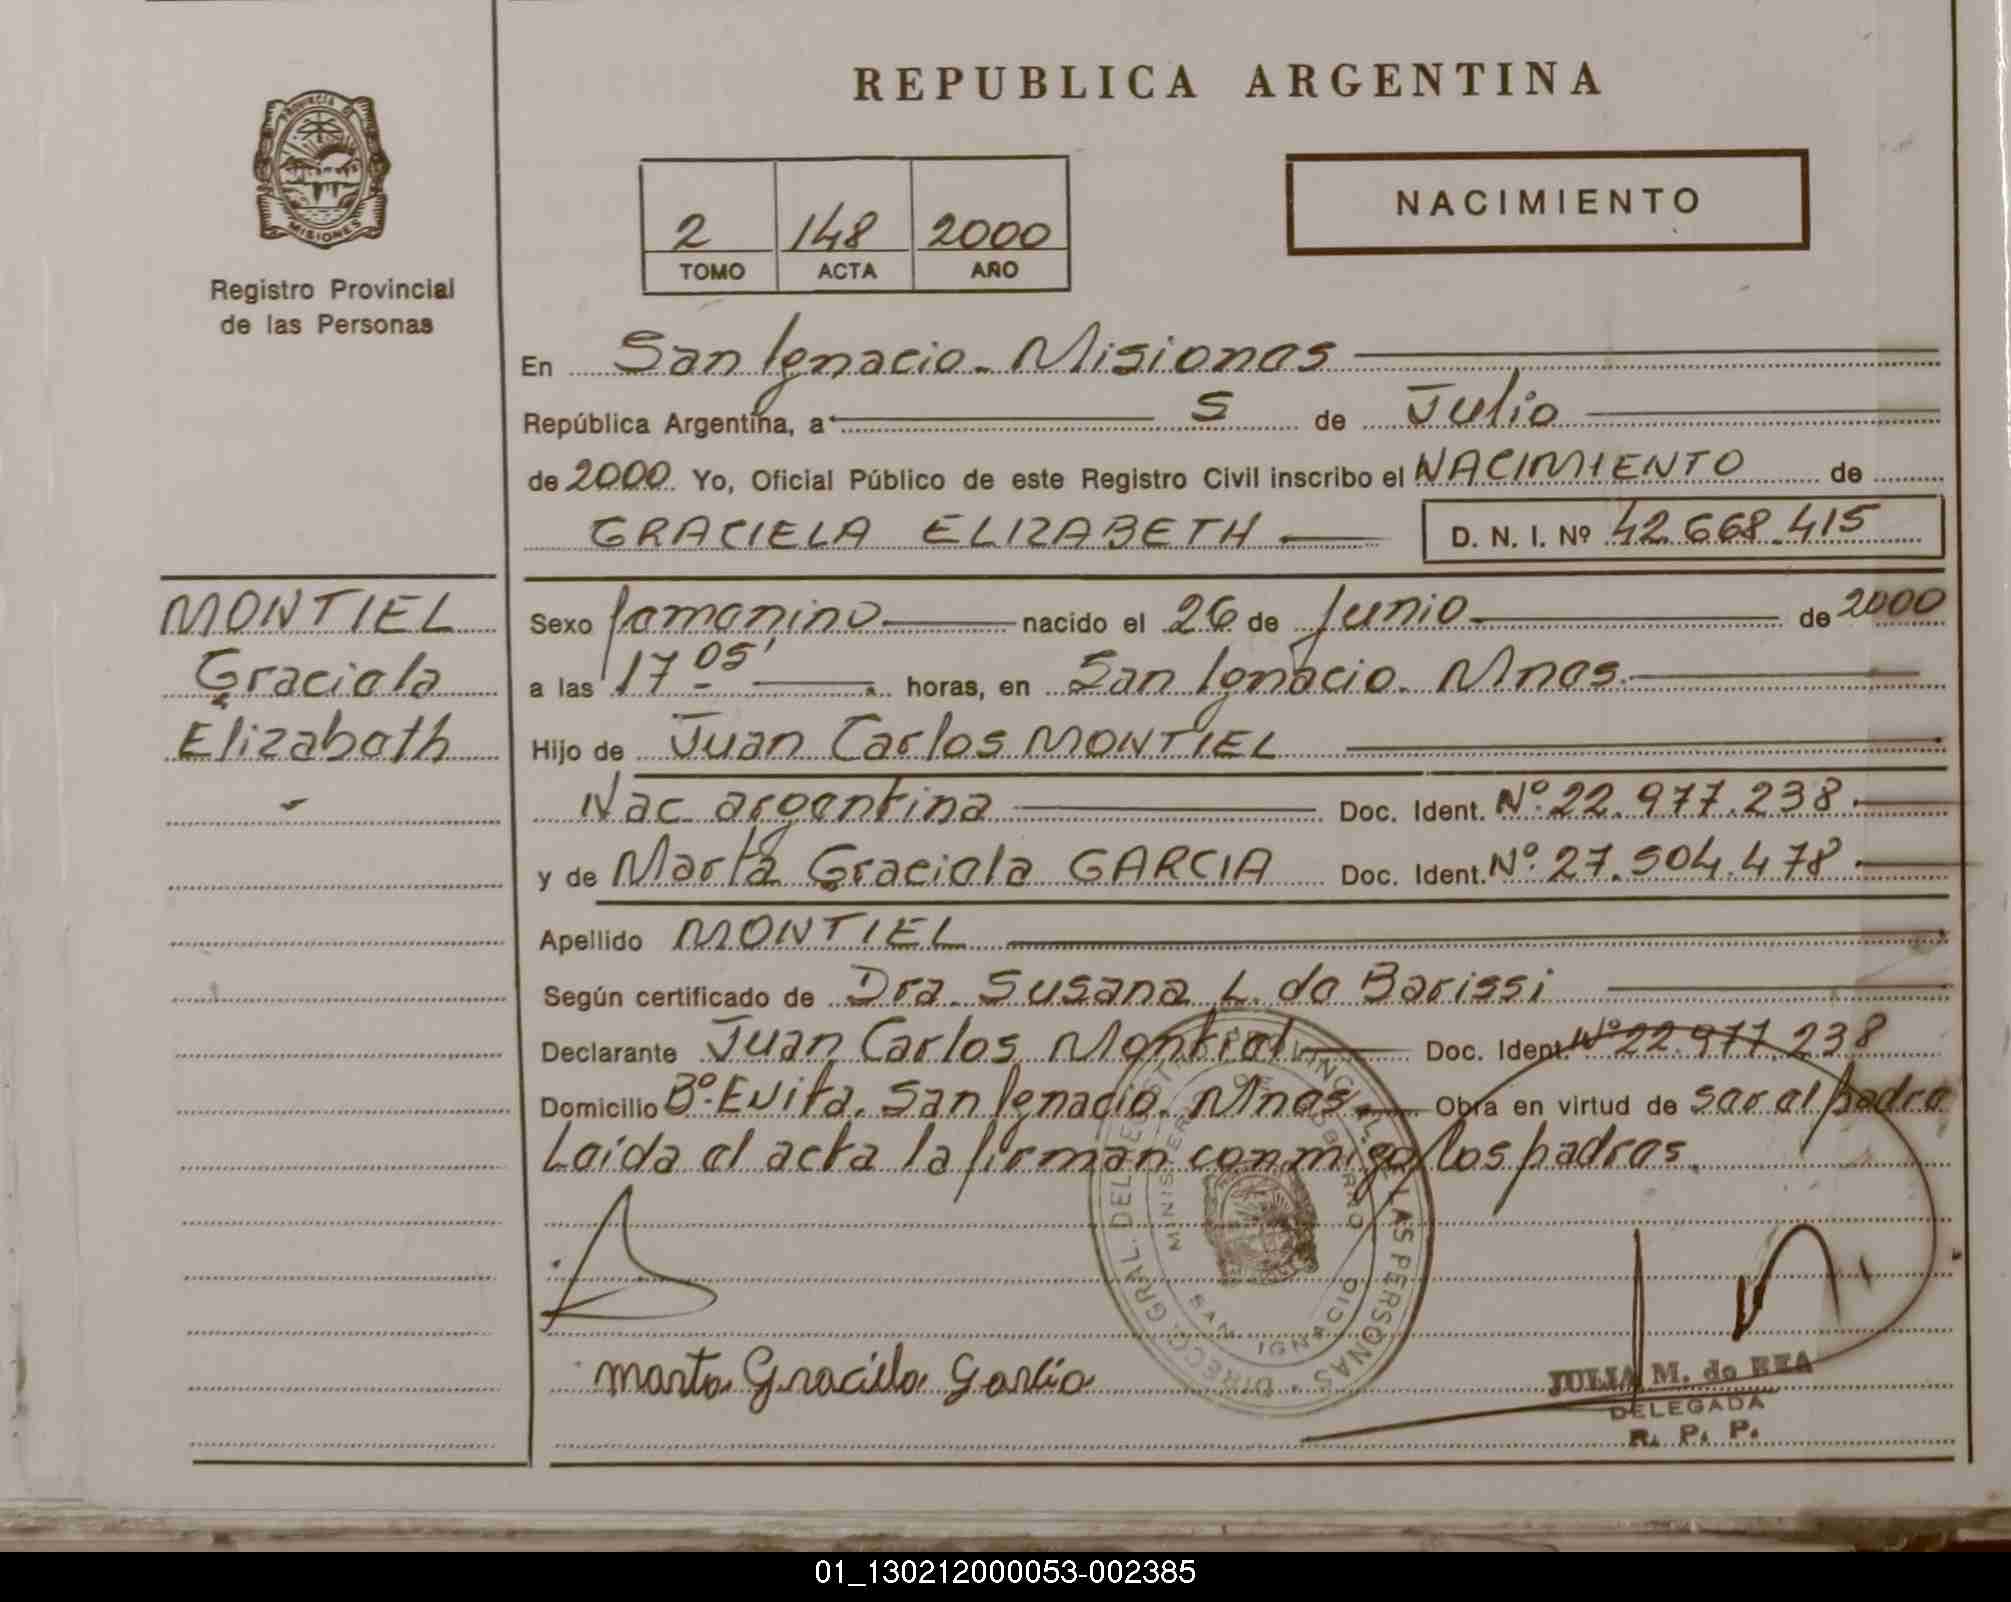 REPUBLICA ARGENTINA
PROVINCIA DE
MISIONES
Registro Provincial
de las Personas
2 148 2000
TOMO ACTA AÑO
NACIMIENTO
En San Ignacio. Misiones
República Argentina, a 5 de Julio
de 2000 Yo, Oficial Público de este Registro Civil inscribo el NACIMIENTO de
GRACIELA ELIZABETH D. N. I. Nº 42.668.415
MONTIEL
Graciela
Elizabeth
Sexo femenino nacido el 26 de Junio de 2000
a las 17 05' horas, en San Ignacio. Mnes.
Hijo de Juan Carlos MONTIEL
Nac. argentina Doc. Ident. Nº 22.977.238
y de Marta Graciela GARCIA Doc. Ident. Nº 27.504.478
Apellido MONTIEL
Según certificado de Dra. Susana L. de Barissi
Declarante Juan Carlos Montiel Doc. Ident. Nº 22.977.238
Domicilio Bº Evita. San Ignacio. Mnes. Obra en virtud de ser el padre
Leída el acta la firman conmigo los padres.
DIRECC. GRAL. DEL REGISTRO PROVINCIAL DE LAS PERSONAS
MINISTERIO DE GOBIERNO
SAN IGNACIO
Marta Graciela García
JULIA M. de REA
DELEGADA
R. P. P.
01_130212000053-002385